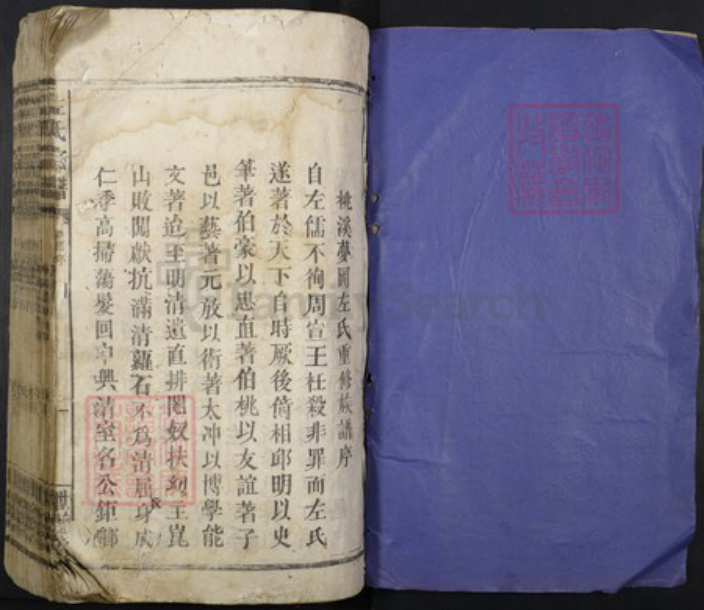 桃溪夢園左氏重修族譜序
自左儒不徇周宣王杜殺非罪而左氏
遂著於天下自時厥後倚相邱明以史
筆著伯豪以忠直著伯桃以友誼著子
邑以藝著元放以術著太冲以博學能
文著迨至明清遺直排閹奴扶幼主崑
山敗闖獻抗滿清蘿石不為清屈身成
仁季高掃蕩髮回中興清室名公鉅卿
左氏宗譜
FamilySearch